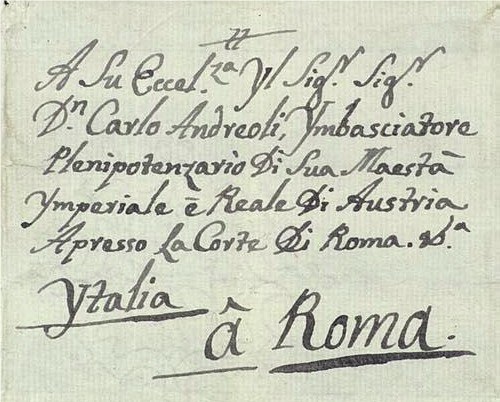 A Su Eccel.za Yl Sig.r Sig.r
D.n Carlo Andreoli, Ymbasciatore
Plenipotenzario Di Sua Maestà
Ymperiale è Reale Di Austria
Apresso La Corte Di Roma. &.a
Ytalia
â Roma.